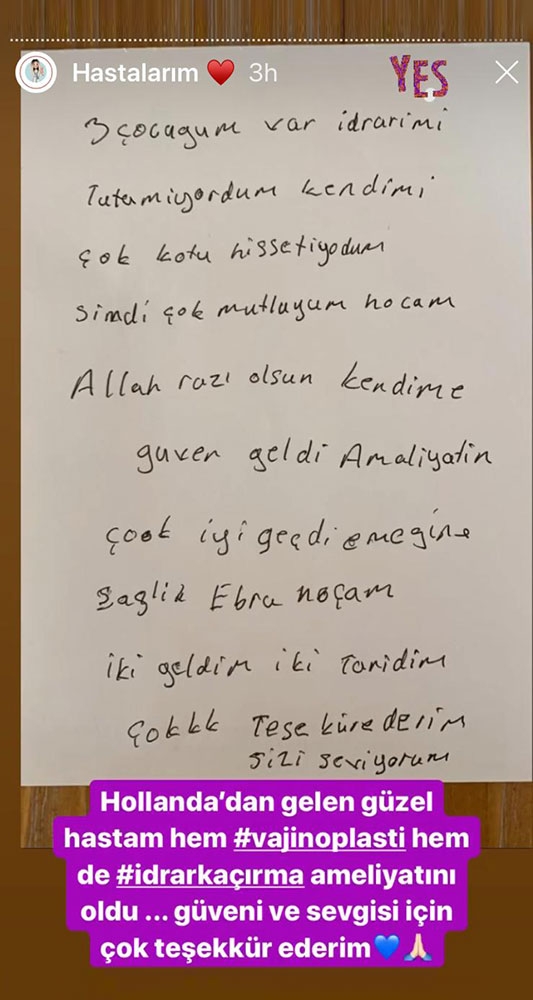 Hastalarım ❤️ 3h
YES
3 çocagum var idrarimi
Tutamiyordum kendimi
çok kotu hissetiyodum
Simdi çok mutluyum hocam
Allah razı olsun kendime
guven geldi Amaliyatin
çook iyi geçdi emegine
Saglik Ebru hoçam
iki geldim iki Tanidim
çokkk Teşe küre derim
sizi seviyorum
Hollanda'dan gelen güzel
hastam hem #vajinoplasti hem
de #idrarkaçırma ameliyatını
oldu ... güveni ve sevgisi için
çok teşekkür ederim💙🙏🏻